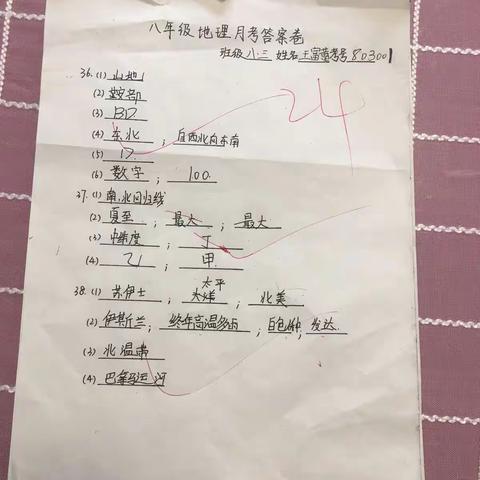 八年级地理月考答案卷
班级 八·三 姓名 王富蕾 考号 803001
24
36.(1) 山地
(2) 鞍部
(3) BD
(4) 东北 ; 自西北向东南
(5) D
(6) 数字 ; 100
37.(1) 南.北回归线
(2) 夏至 ; 最大 ; 最大
(3) 中纬度 ; 丁
(4) 乙 ; 甲
38.(1) 苏伊士 太平 洋 北美
(2) 伊斯兰 ; 终年高温多雨 ; 白色人种 ; 发达
(3) 北温带
(4) 巴拿马运河